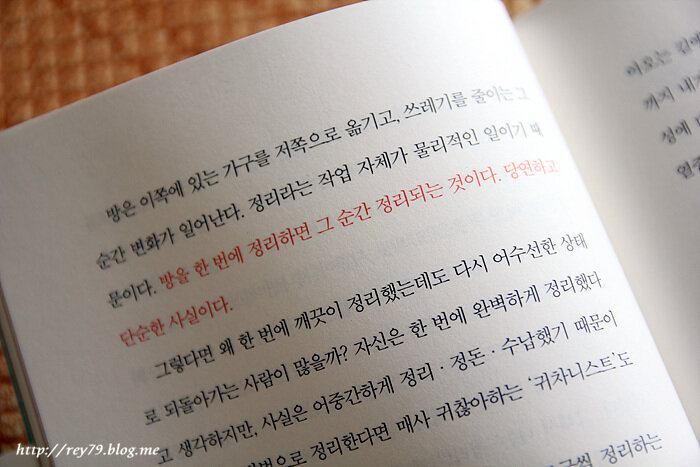 방은 이쪽에 있는 가구를 저쪽으로 옮기고, 쓰레기를 줄이는 그
순간 변화가 일어난다. 정리라는 작업 자체가 물리적인 일이기 때
문이다. 방을 한 번에 정리하면 그 순간 정리되는 것이다. 당연하고
단순한 사실이다.
그렇다면 왜 한 번에 깨끗이 정리했는데도 다시 어수선한 상태
로 되돌아가는 사람이 많을까? 자신은 한 번에 완벽하게 정리했다
고 생각하지만, 사실은 어중간하게 정리 · 정돈 · 수납했기 때문이
정리한다면 매사 귀찮아하는 ‘귀차니스트’도
정리하는
까지 내가
http://rey79.blog.me